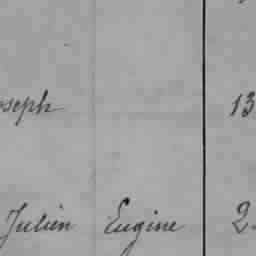 oseph 13
Julien Eugine 2